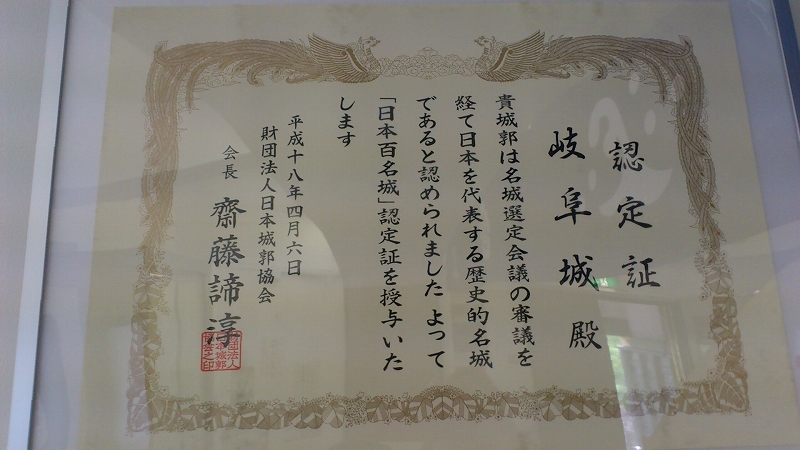 認定証
岐阜城殿
貴城郭は名城選定会議の審議を
経て日本を代表する歴史的名城
であると認められました よって
「日本百名城」認定証を授与いた
します
平成十八年四月六日
財団法人日本城郭協会
会長 齋藤諦淳